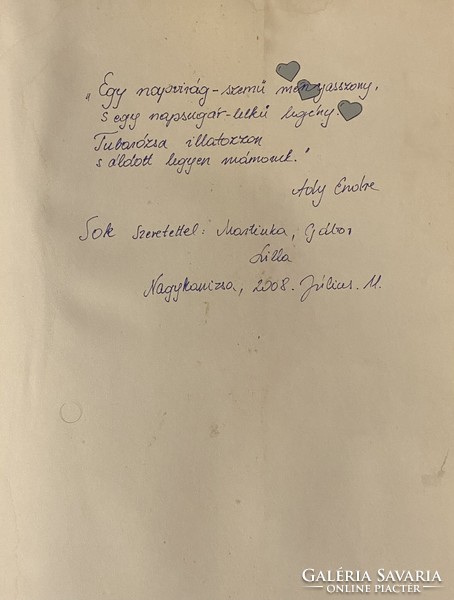 „Egy napvirág-szemű menyasszony,
s egy napsugár-lelkű legény.
Tubarózsa illatozzon
s áldott legyen mámoruk."
Ady Endre
Sok szeretettel: Martinka, Gábor
Lilla
Nagykanizsa, 2008. Július 11.
GALÉRIA SAVARIA
ONLINE PIACTÉR